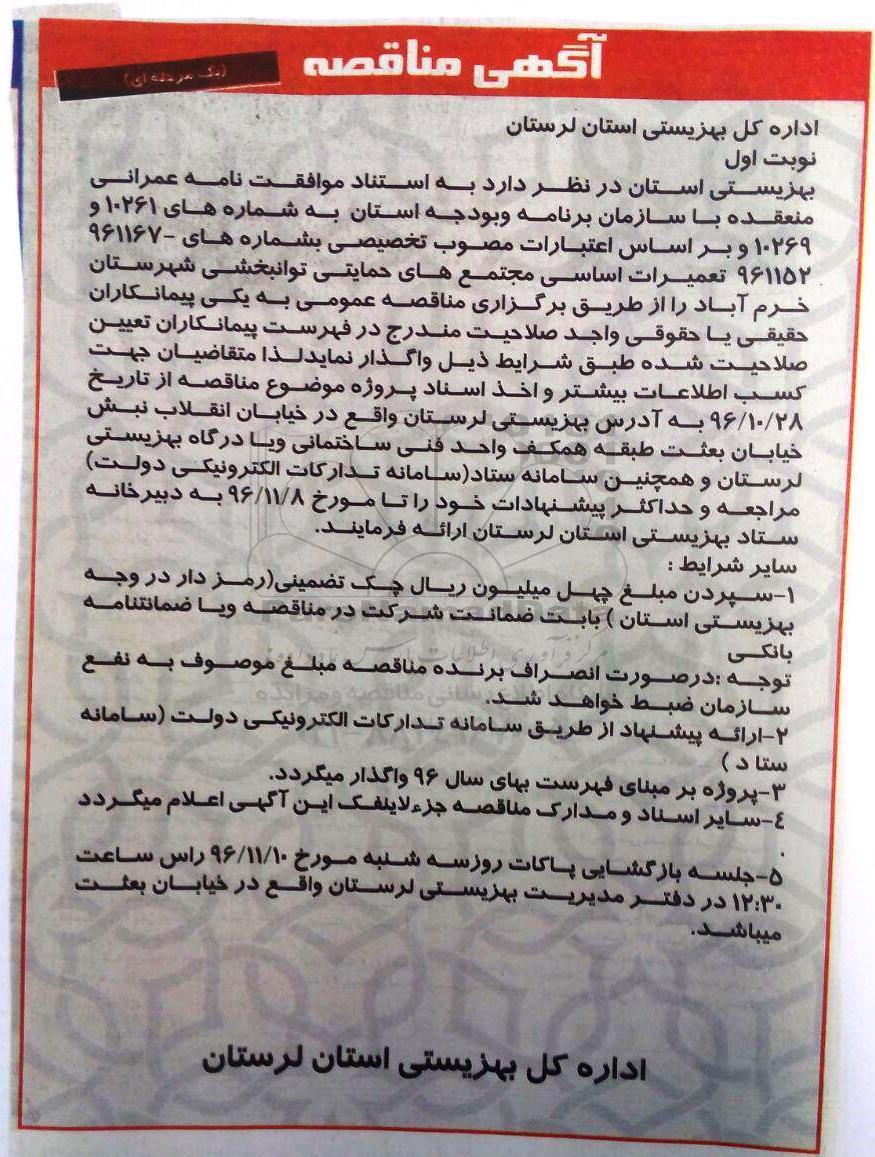 آگهی مناقصه
(یک مرحله ای)
اداره کل بهزیستی استان لرستان
نوبت اول
بهزیستی استان در نظر دارد به استناد موافقت نامه عمرانی
منعقده با سازمان برنامه وبودجه استان به شماره های ۱۰۲۶۱ و
۱۰۲۶۹ و بر اساس اعتبارات مصوب تخصیصی بشماره های -۹۶۱۱۶۷
۹۶۱۱۵۲ تعمیرات اساسی مجتمع های حمایتی توانبخشی شهرستان
خرم آباد را از طریق برگزاری مناقصه عمومی به یکی پیمانکاران
حقیقی یا حقوقی واجد صلاحیت مندرج در فهرست پیمانکاران تعیین
صلاحیت شده طبق شرایط ذیل واگذار نمایدلذا متقاضیان جهت
کسب اطلاعات بیشتر و اخذ اسناد پروژه موضوع مناقصه از تاریخ
۹۶/۱۰/۲۸ به آدرس بهزیستی لرستان واقع در خیابان انقلاب نبش
خیابان بعثت طبقه همکف واحد فنی ساختمانی ویا درگاه بهزیستی
لرستان و همچنین سامانه ستاد(سامانه تدارکات الکترونیکی دولت)
مراجعه و حداکثر پیشنهادات خود را تا مورخ ۹۶/۱۱/۸ به دبیرخانه
ستاد بهزیستی استان لرستان ارائه فرمایند.
سایر شرایط :
۱-سپردن مبلغ چهل میلیون ریال چک تضمینی(رمز دار در وجه
بهزیستی استان ) بابت ضمانت شرکت در مناقصه ویا ضمانتنامه
بانکی
توجه :درصورت انصراف برنده مناقصه مبلغ موصوف به نفع
سازمان ضبط خواهد شد.
۲-ارائه پیشنهاد از طریق سامانه تدارکات الکترونیکی دولت (سامانه
ستا د )
۳-پروژه بر مبنای فهرست بهای سال ۹۶ واگذار میگردد.
۴-سایر اسناد و مدارک مناقصه جزءلاینفک این آگهی اعلام میگردد
.
۵-جلسه بازگشایی پاکات روزسه شنبه مورخ ۹۶/۱۱/۱۰ راس ساعت
۱۲:۳۰ در دفتر مدیریت بهزیستی لرستان واقع در خیابان بعثت
میباشد.
اداره کل بهزیستی استان لرستان